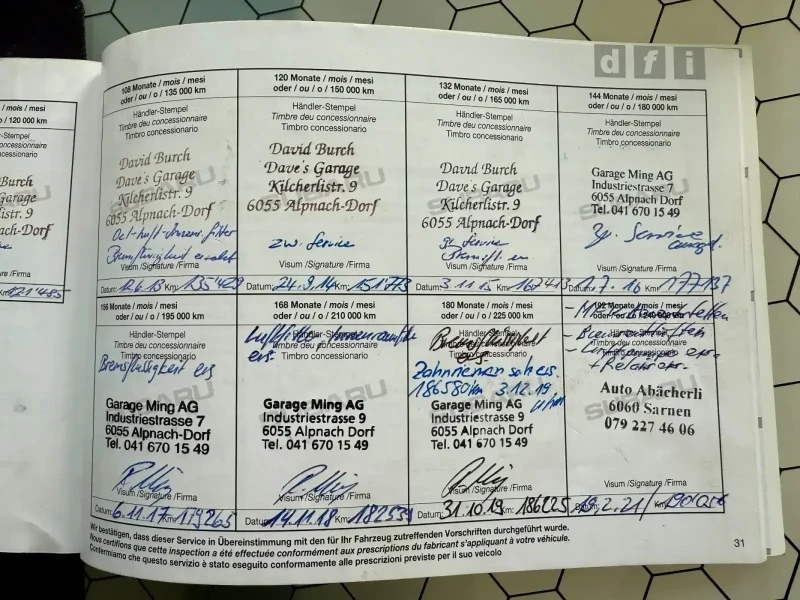 dfi
/ mois / mesi
/ o / 120 000 km
Händler-Stempel
concessionnaire
concessionario
Burch
Garage
9
Dorf
Visum /Signature /Firma
121'485
108 Monate / mois / mesi
oder / ou / o / 135 000 km
Händler-Stempel
Timbre deu concessionnaire
Timbro concessionario
David Burch
Dave's Garage
Kilcherlistr. 9
6055 Alpnach-Dorf
Bremsflüssigkeit
Visum /Signature /Firma
Datum: 12.6.13 Km: 135'429
120 Monate / mois / mesi
oder / ou / o / 150 000 km
Händler-Stempel
Timbre deu concessionnaire
Timbro concessionario
David Burch
Dave's Garage
Kilcherlistr. 9
6055 Alpnach-Dorf
zw. Service
Visum /Signature /Firma
Datum: 24.9.14 Km: 151'773
132 Monate / mois / mesi
oder / ou / o / 165 000 km
Händler-Stempel
Timbre deu concessionnaire
Timbro concessionario
David Burch
Dave's Garage
Kilcherlistr. 9
6055 Alpnach-Dorf
Service
Visum /Signature /Firma
Datum: 3.11.15 Km: 167413
144 Monate / mois / mesi
oder / ou / o / 180 000 km
Händler-Stempel
Timbre deu concessionnaire
Timbro concessionario
Garage Ming AG
Industriestrasse 7
6055 Alpnach-Dorf
Tel. 041 670 15 49
Service
Visum /Signature /Firma
Datum: 7.16 Km: 177137
156 Monate / mois / mesi
oder / ou / o / 195 000 km
Händler-Stempel
Timbre deu concessionnaire
Timbro concessionario
Bremsflüssigkeit ers
SUBARU
Garage Ming AG
Industriestrasse 7
6055 Alpnach-Dorf
Tel. 041 670 15 49
Visum /Signature /Firma
Datum: 6.11.17 Km: 179265
168 Monate / mois / mesi
oder / ou / o / 210 000 km
Händler-Stempel
Timbre deu concessionnaire
Timbro concessionario
Luftfilter, Innenraumfilter
ers.
SUBARU
Garage Ming AG
Industriestrasse 9
6055 Alpnach-Dorf
Tel. 041 670 15 49
Visum /Signature /Firma
Datum: 14.11.18 Km: 182539
180 Monate / mois / mesi
oder / ou / o / 225 000 km
Händler-Stempel
Timbre deu concessionnaire
Timbro concessionario
Bremsflüssigkeit
ers.
Zahnriemen ers.
186580km 3.12.19
SUBARU
Garage Ming AG
Industriestrasse 9
6055 Alpnach-Dorf
Tel. 041 670 15 49
Visum /Signature /Firma
Datum: 31.10.19 Km: 186225
192 Monate / mois / mesi
Händler-Stempel
Timbre deu concessionnaire
SUBARU
Auto Abächerli
6060 Sarnen
079 227 46 06
Visum /Signature /Firma
Datum: 19.2.21 Km: 190056
Wir bestätigen, dass dieser Service in Übereinstimmung mit den für Ihr Fahrzeug zutreffenden Vorschriften durchgeführt wurde.
Nous certifions que cette inspection a été effectuée conformément aux prescriptions du fabricant s'appliquant à votre véhicule.
Confermiamo che questo servizio è stato eseguito conformamente alle prescrizioni previste per il suo veicolo
31